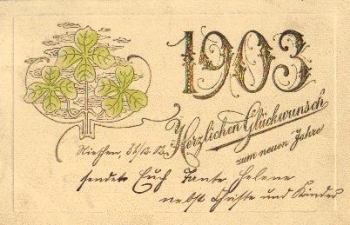 1903
Herzlichen Glückwunsch
zum neuen Jahre
sendet Euch Tante Helene
nebst Christe und Kinder